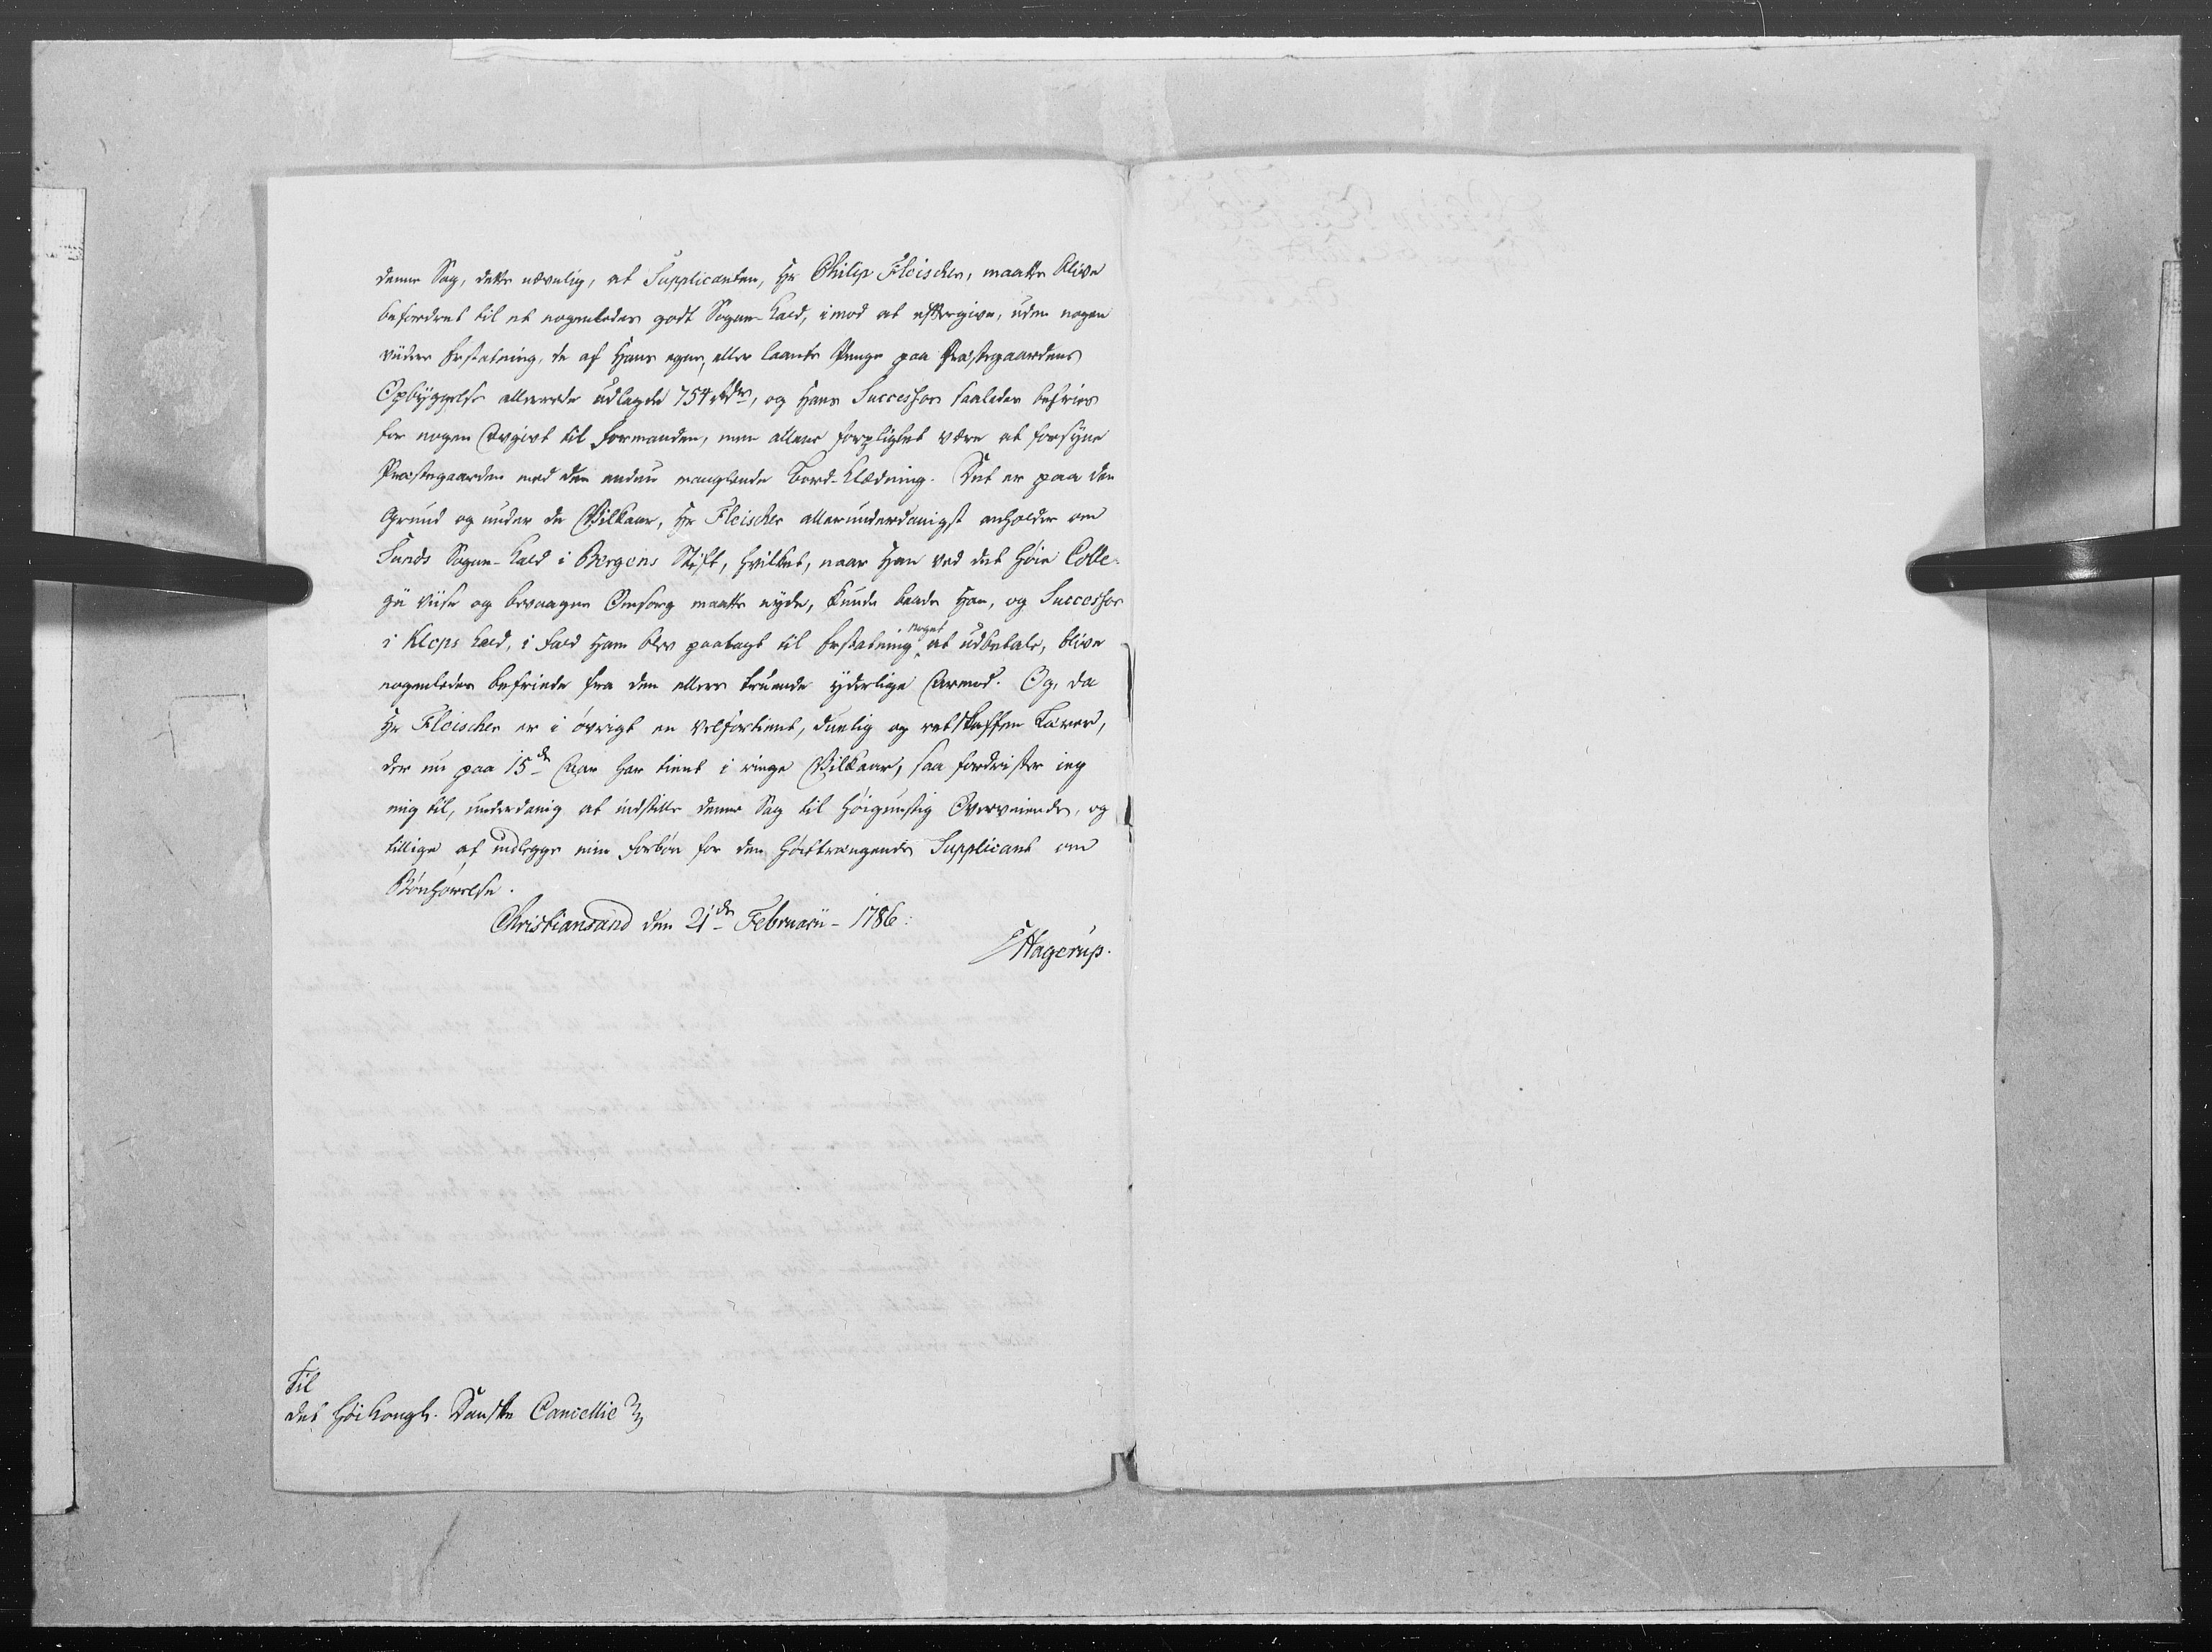 denne Sag, dette nævnlig, at Supplicanten, Hr Philip Fleischer, maatte blive
befordret til et nogenledes godt Sogne-Kald, imod at eftergive, uden nogen
viidere Erstatning, de af Hans egne, eller laante Penge paa Præstegaardens
Opbyggelse allerede udlagde 754 rdr, og Hans Successor saaledes befries
for nogen Avgivt til Formanden, men allene forpligtet være at forsyne
Præstegaarden med den endnu manglende Bord-Klædning. Det er paa den
Grund og under de Vilkaar, Hr Fleischer allerunderdanigst anholder om
Sunds Sogne-Kald i Bergens Stift, hvilket, naar Han ved det høie Colle-
gii viise og bevaagne Omsorg maatte nyde, kunde baade Han, og Successor
i Kleps Kald, i Fald Ham blev paalagt til Erstatning noget at udbetale, blive
nogenledes befriede fra den ellers truende yderlige Armod. Og, da
Hr Fleischer er i øvrigt en velfortient, duelig og retskaffen Lærer,
der nu paa 15de Aar har tient i ringe Vilkaar, saa fordrister ieg
mig til, underdanig at indstille denne Sag til høigunstig Overveiende, og
tillige at indlegge min Forbøn for den høittrængende Supplicant om
Bønhørelse.
Christiansand den 21de Februarii - 1786.
Hagerup.
Til
det høi Kongl. Danske Cancellie